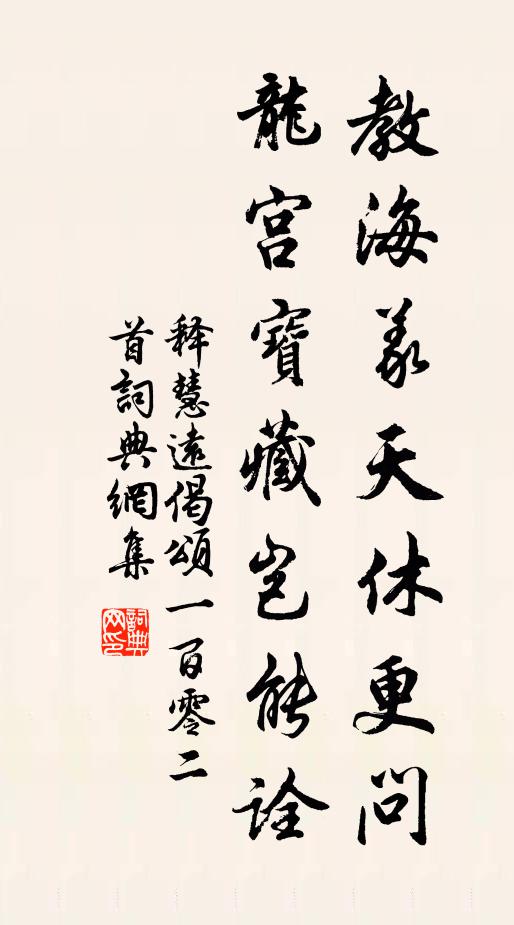 教海義天休更問
龍宮寶藏豈能詮
释慧遠偈頌一百零二
首詞典網集
詞典网印